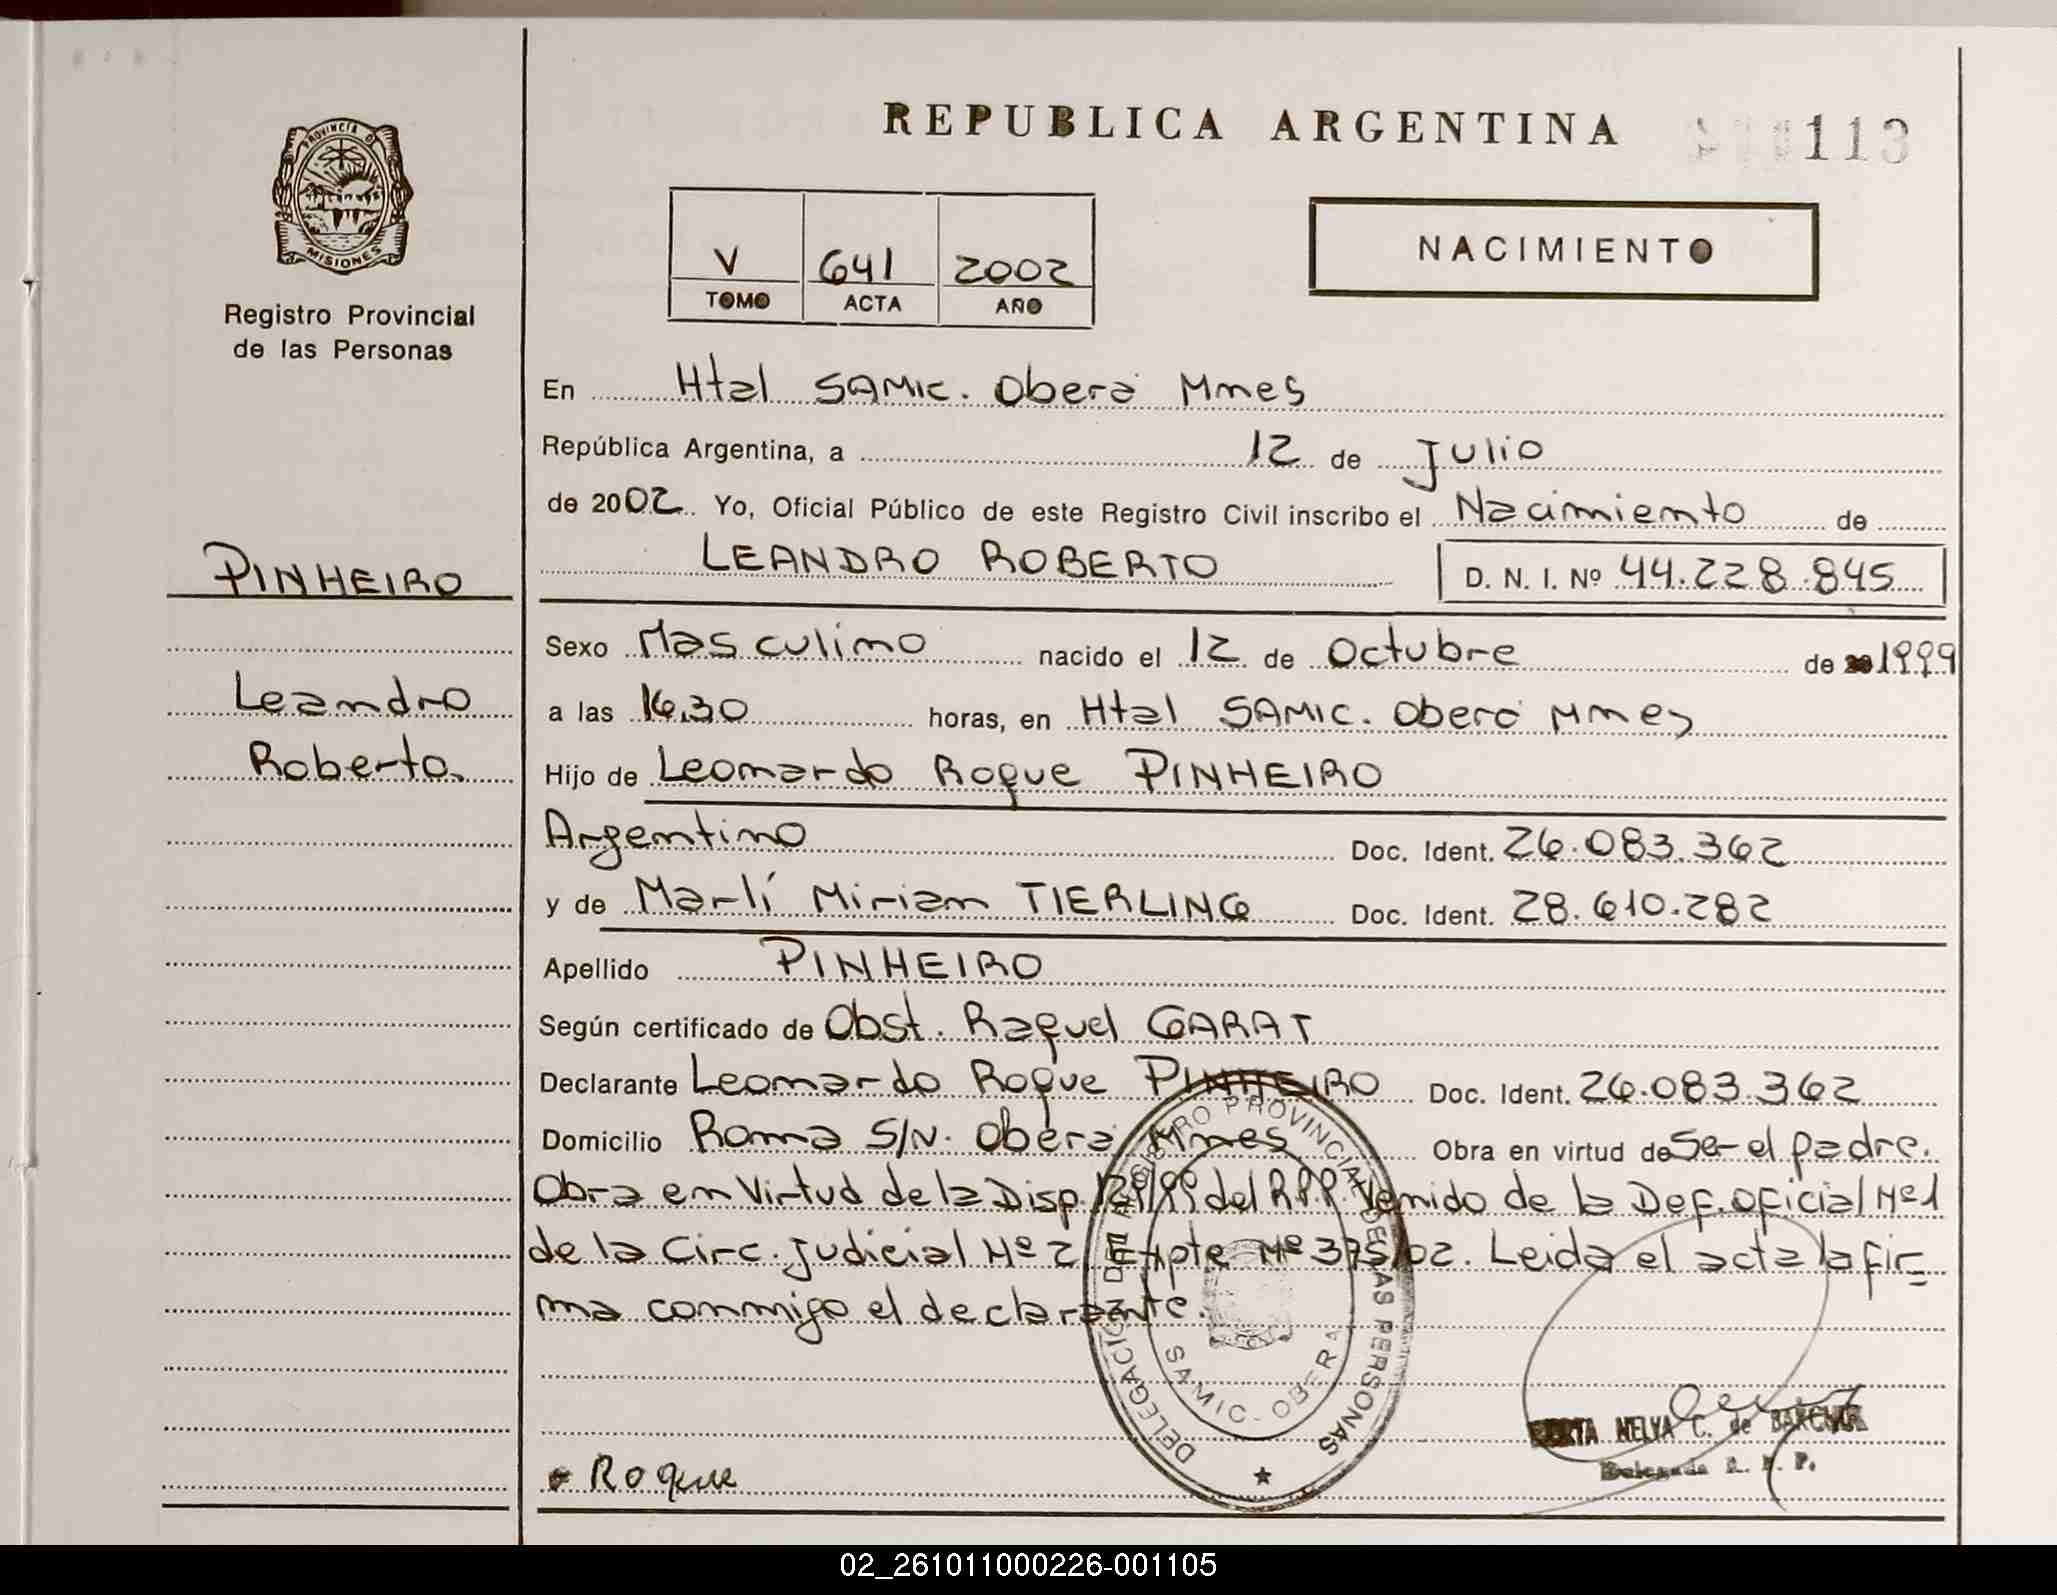 REPUBLICA ARGENTINA
113
PROVINCIA D
MISIONES
Registro Provincial
de las Personas
V 641 2002
TOMO ACTA AÑO
NACIMIENTO
En Htal SAMIC. Oberá Mnes
República Argentina, a 12 de Julio
de 2002 Yo, Oficial Público de este Registro Civil inscribo el Nacimiento de
LEANDRO ROBERTO D. N. I. Nº 44.228.845
PINHEIRO
Leandro
Roberto.
Sexo Masculino nacido el 12 de Octubre de 1999
a las 16,30 horas, en Htal SAMIC. Oberá Mnes
Hijo de Leonardo Roque PINHEIRO
Argentino Doc. Ident. 26.083.362
y de Marlí Miriam TIERLING Doc. Ident. 28.610.282
Apellido PINHEIRO
Según certificado de Obst. Raquel GARAT
Declarante Leonardo Roque PINHEIRO Doc. Ident. 26.083.362
Domicilio Roma S/N. Oberá Mnes Obra en virtud de Ser el padre.
Obra en Virtud de la Disp. /99 del R.P.P. Venido de la Def. oficial Nº1
de la Circ. Judicial Nº 2 Expte Nº 375/02. Leida el acta la fir-
ma conmigo el declarante.
DELEGACION DEL REGISTRO PROVINCIAL DE LAS PERSONAS
SAMIC - OBERA
Roque
NELVA C. de
Delegada R. P. P.
02_261011000226-001105